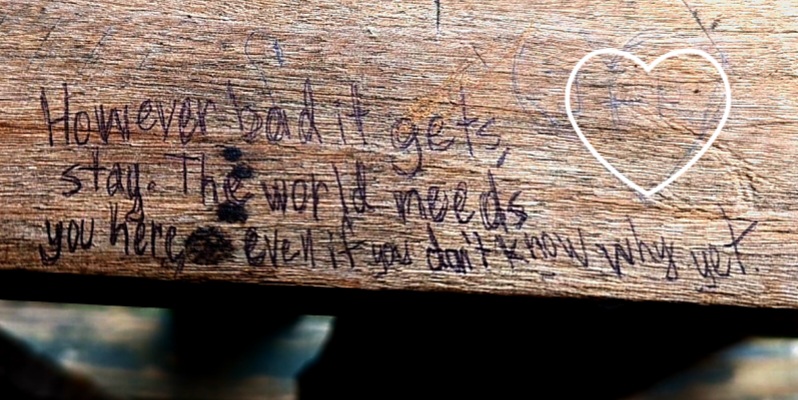 However bad it gets,
stay. The world needs
you here, even if you don't know why yet.